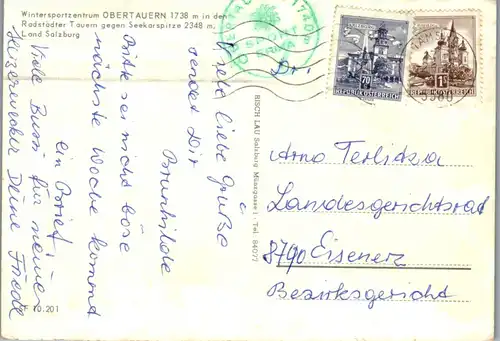 Wintersportzentrum OBERTAUERN 1738 m in den
Radstädter Tauern gegen Seekarspitze 2348 m.
Land Salzburg
Viele liebe Grüße
sendet Dir
Brunhilde
Bitte sei nicht böse
nächste Woche kommt
ein Brief!
Viele Bussi für meinen
Deine Friedl
F 10.201
RISCH LAU Salzburg
Tel. 84077
70 g
REPUBLIK ÖSTERREICH
1 S
REPUBLIK ÖSTERREICH
Dr.
Arno Terlitza
Landesgerichtsrat
8790 Eisenerz
Bezirksgericht